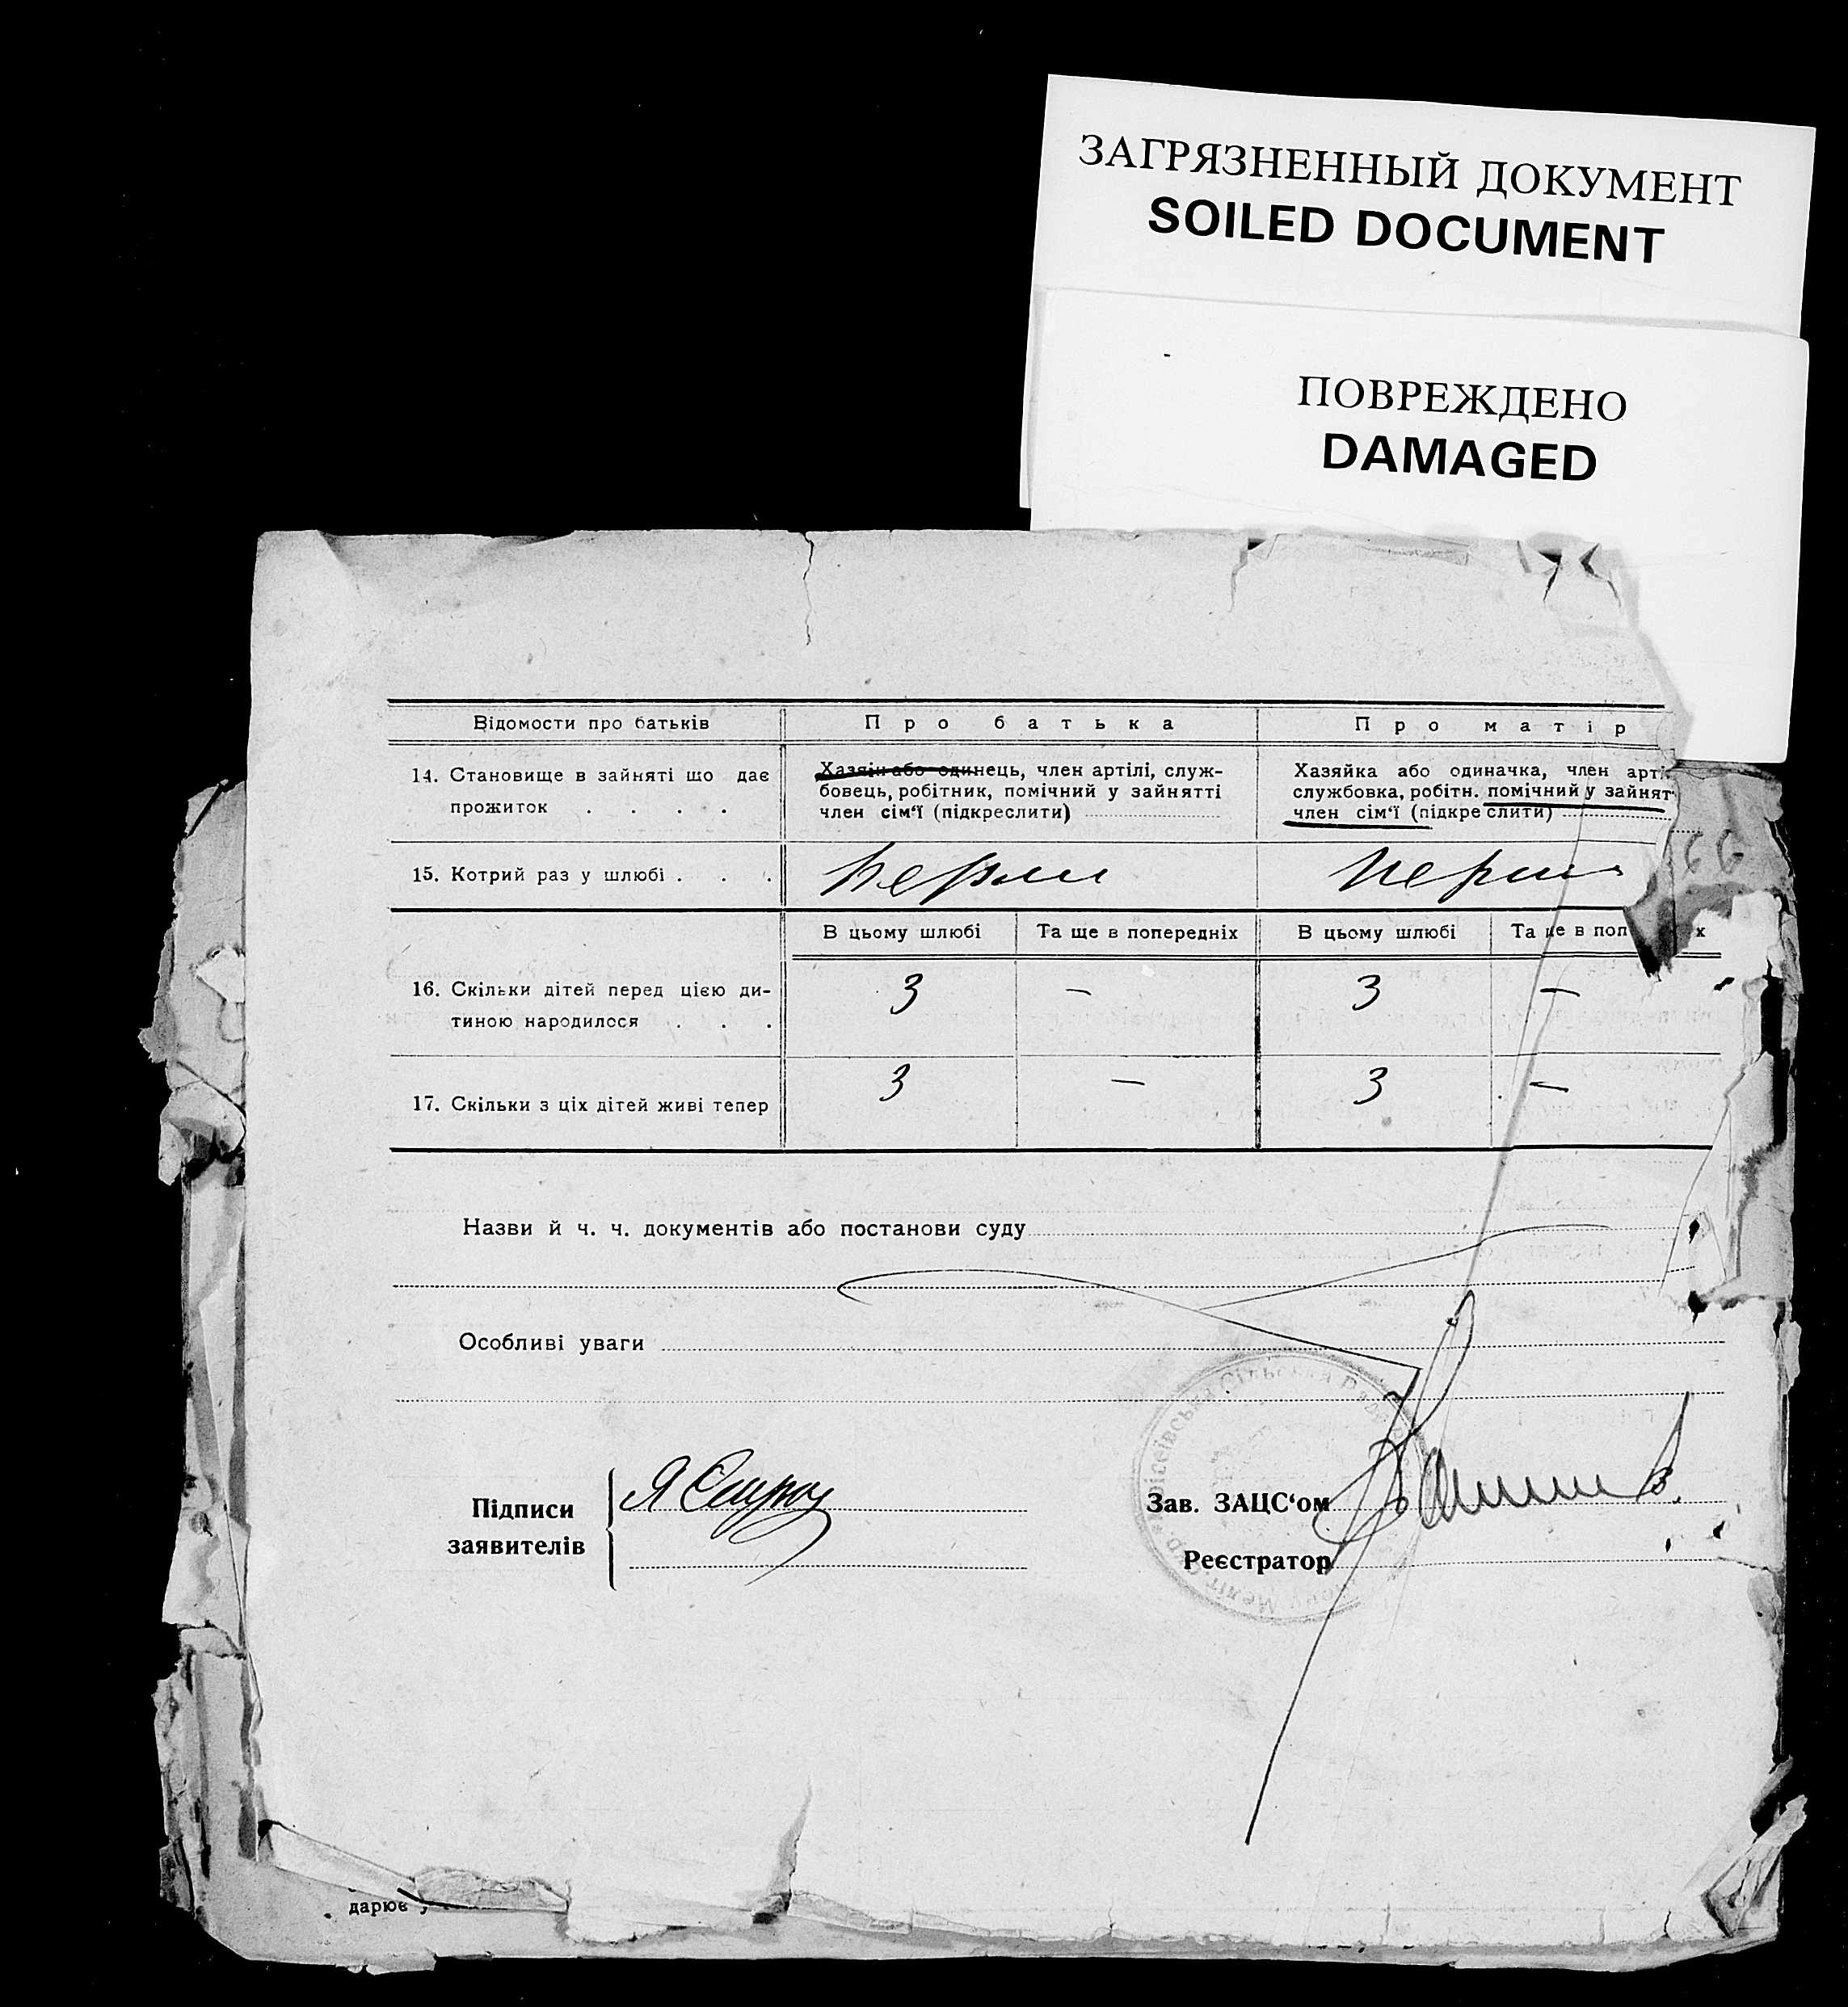 ЗАГРЯЗНЕННЫЙ ДОКУМЕНТ
SOILED DOCUMENT
ПОВРЕЖДЕНО
DAMAGED
Відомости про батьків
Про батька
Про матір
14. Становище в зайняті що дає
прожиток . . . .
Хазяїн або одинець, член артілі, служ-
бовець, робітник, помічний у зайнятті
член сім'ї (підкреслити)
Хазяйка або одиначка, член арті
службовка, робітн. помічний у зайнят
член сім'ї (підкреслити)
15. Котрий раз у шлюбі . . .
перши
перши
В цьому шлюбі
Та ще в попередніх
В цьому шлюбі
Та ще в поп х
16. Скільки дітей перед цією ди-
тиною народилося . . .
3
—
3
—
17. Скільки з ціх дітей живі тепер
3
—
3
—
Назви й ч. ч. документів або постанови суду
Особливі уваги
Підписи
заявителів
Я
Зав. ЗАЦС'ом
Реєстратор
Сільська Рада
дарює у